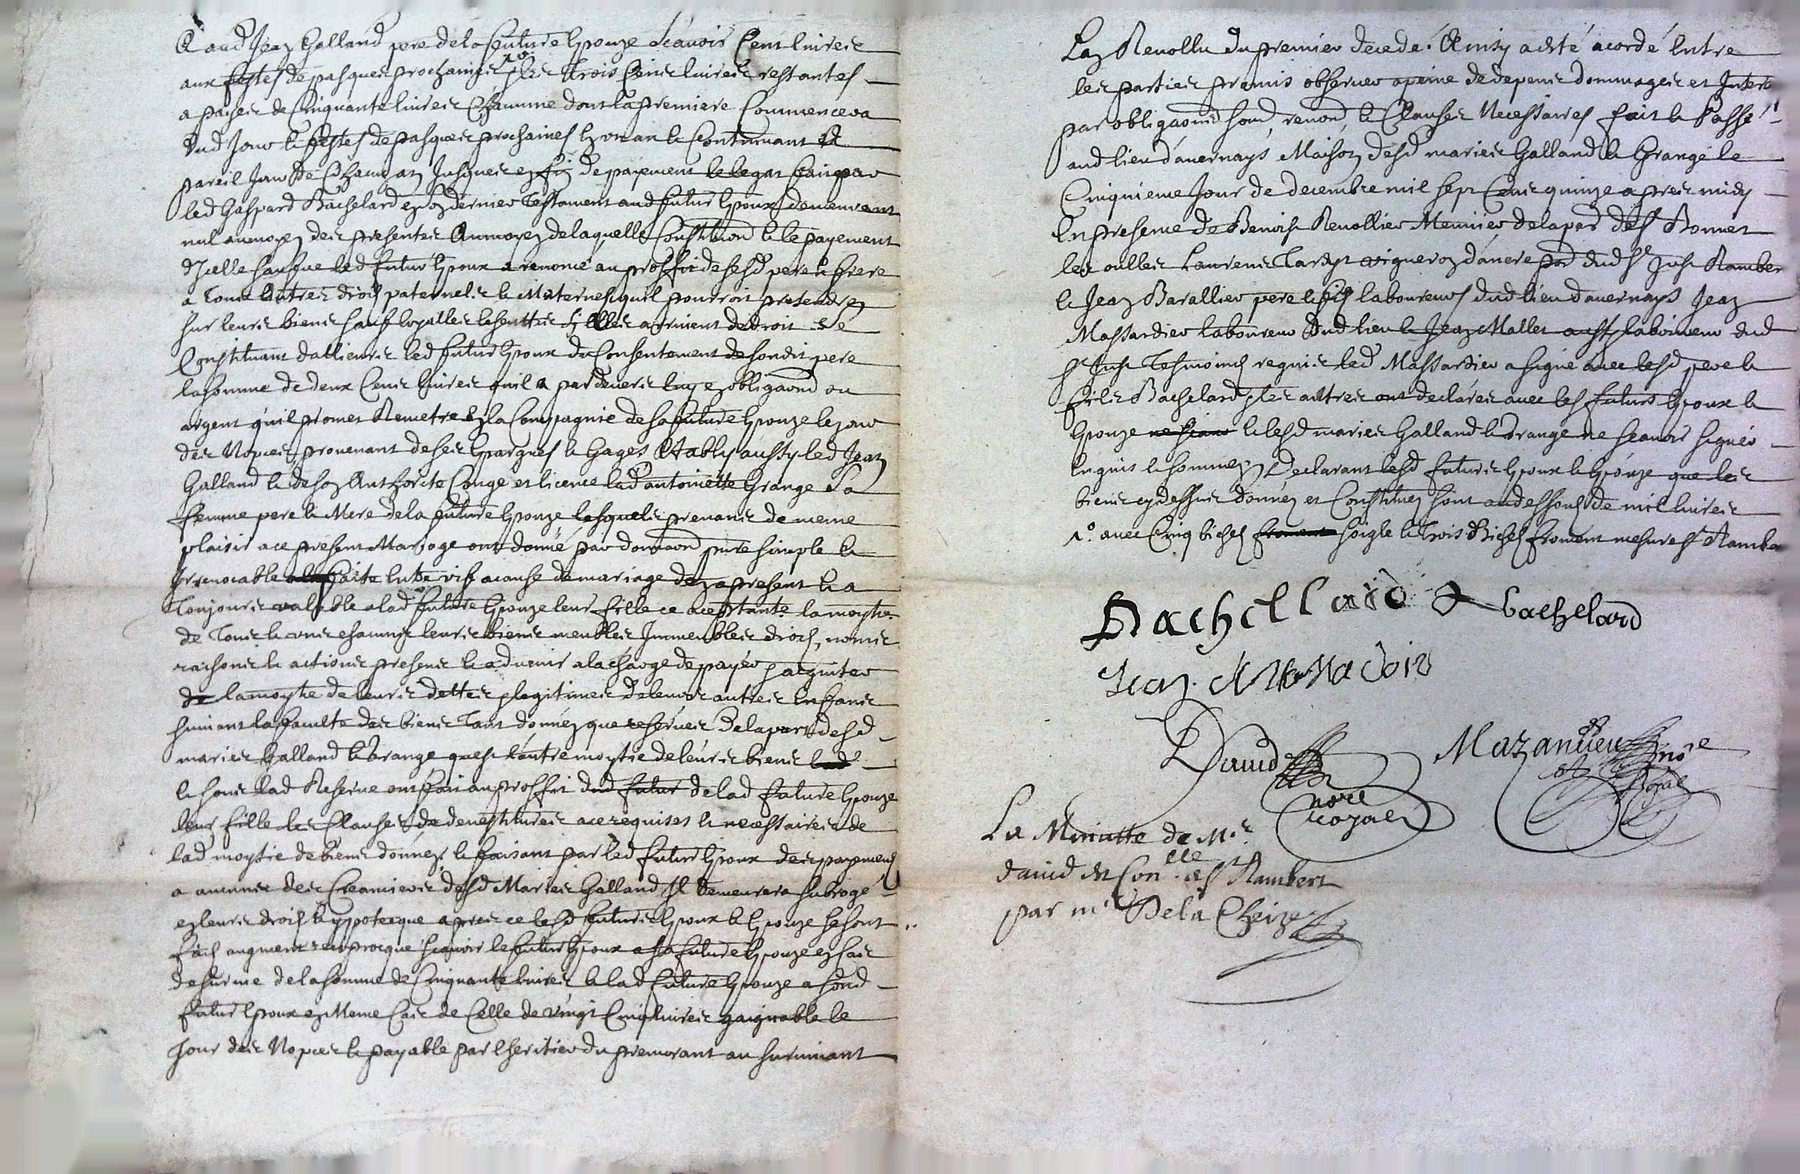 Et aud Jean Galland pere de la future Epouze scavoir Cent livres
aux festes de pasques prochaines les trois Cens livres restantes
a payes de Cinquante livres Chacunne dont la premiere Commencera
dud Jour & festes de pasques prochaines en un an & Continuant a
pareil Jour de Chacun an Jusques en fin de payement le legat fait par
led Gaspard Bachelard en son dernier Testament aud futur Epoux demeurant
nul au moyen des presentes Au moyen de laquelle Constituon & le payement
d'Icelle sauf que led futur Epoux a renoncé au proffit de sesd pere & frere
a Tous autres droits paternels & Maternels quil pourroit pretendre
sur leurs biens sauf loyalles
Constituant dallieurs led futur Epoux du Consentement de sondit pere
la somme de deux Cens livres quil a pardevers luy en obligaond ou
argent quil promet Remetre en la Compagnie de sa future Epouze le jour
des Nopces provenant de ses Epargnes & Gages Et ablis aussy led Jean
Galland & de son Authorite Conge et licence lad antoinette Grange Sa
femme pere & Mere de la future Epouze lesquels prenans de meme
plaisir a ce present Mariage ont donné par donnaon pure simple &
Irrevocable faite Entre vifs a cause de mariage dez a present & a
Toujours valable a lad future Epouze leur fille ce aceptante la moytie
de Tous & uns chacuns leurs biens meubles Immeubles droits, noms
raisons & actions presens & advenir a la charge de payer sacquiter
de la moytie de leurs dettes & legitimes de leurs autres Enffans
suivant la faculte des biens Tant donnez que reservés De la part desd
maries Galland & Grange quest l'autre moytie de leurs biens
& sous lad Reserve ont fait au proffit de lad future Epouze
leur fille les Clauses de devestitures a ce requises & necessaires de
lad moytie de biens donnez & faisant par led futur Epoux des payemens
a aucuns des Creanciers desd Maries Galland Il demeurera subrogé
en leurs droits & ypoteque apres ce lesd futurs Epoux & Epouze se sont
faits augment reciproque scavoir le futur Epoux a sa future Epouze en cas
de survie de la somme de Cinquante livres & lad future Epouze a sond
futur Epoux en Meme Cas de Celle de vingt Cinq livres gaignable le
Jour des Nopces & payable par lheritier du premorant au survivant
Lan Revollu du premier decede. Et ainsy a eté acordé Entre
les parties promis observer a peine de depens dommages et Interets
par obligaons soud, renond, & Clauses Necessaires fait & Passé
aud lieu d'avernays Maison desd maries Galland & Grange le
Cinquieme Jour de decembre mil sept Cens quinze apres midy
En presence de Benoist Revollier Meunier de la par de St Bonnet
les oulles Laurens Tardy vigneron dancre par dud St Just Rambert
& Jean Barallier pere & fils laboureurs dud lieu davernays Jean
Massardier laboureur dud lieu & Jean Mallet aussy laboureur dud
St Just Tesmoins requis led Massardier a signé avec lesd pere &
fils Bachelard les autres ont declarés avec les futurs Epoux &
Epouze & lesd maries Galland & Grange ne scavoir signer
Enquis & sommez Declarant lesd futurs Epoux & Epouze que les
biens cy dessus donnez et Constituez sont au dessous de mil livres
avec Cinq bichets soigle & trois Bichets froment mesure St Rambert
Bachellard & Bachelard
Jean Massardier
David Mazandieu
nore Royal
noe Royal
La Minutte de Mr
david est Con.lle
St Rambert
par mr Dela Cheize